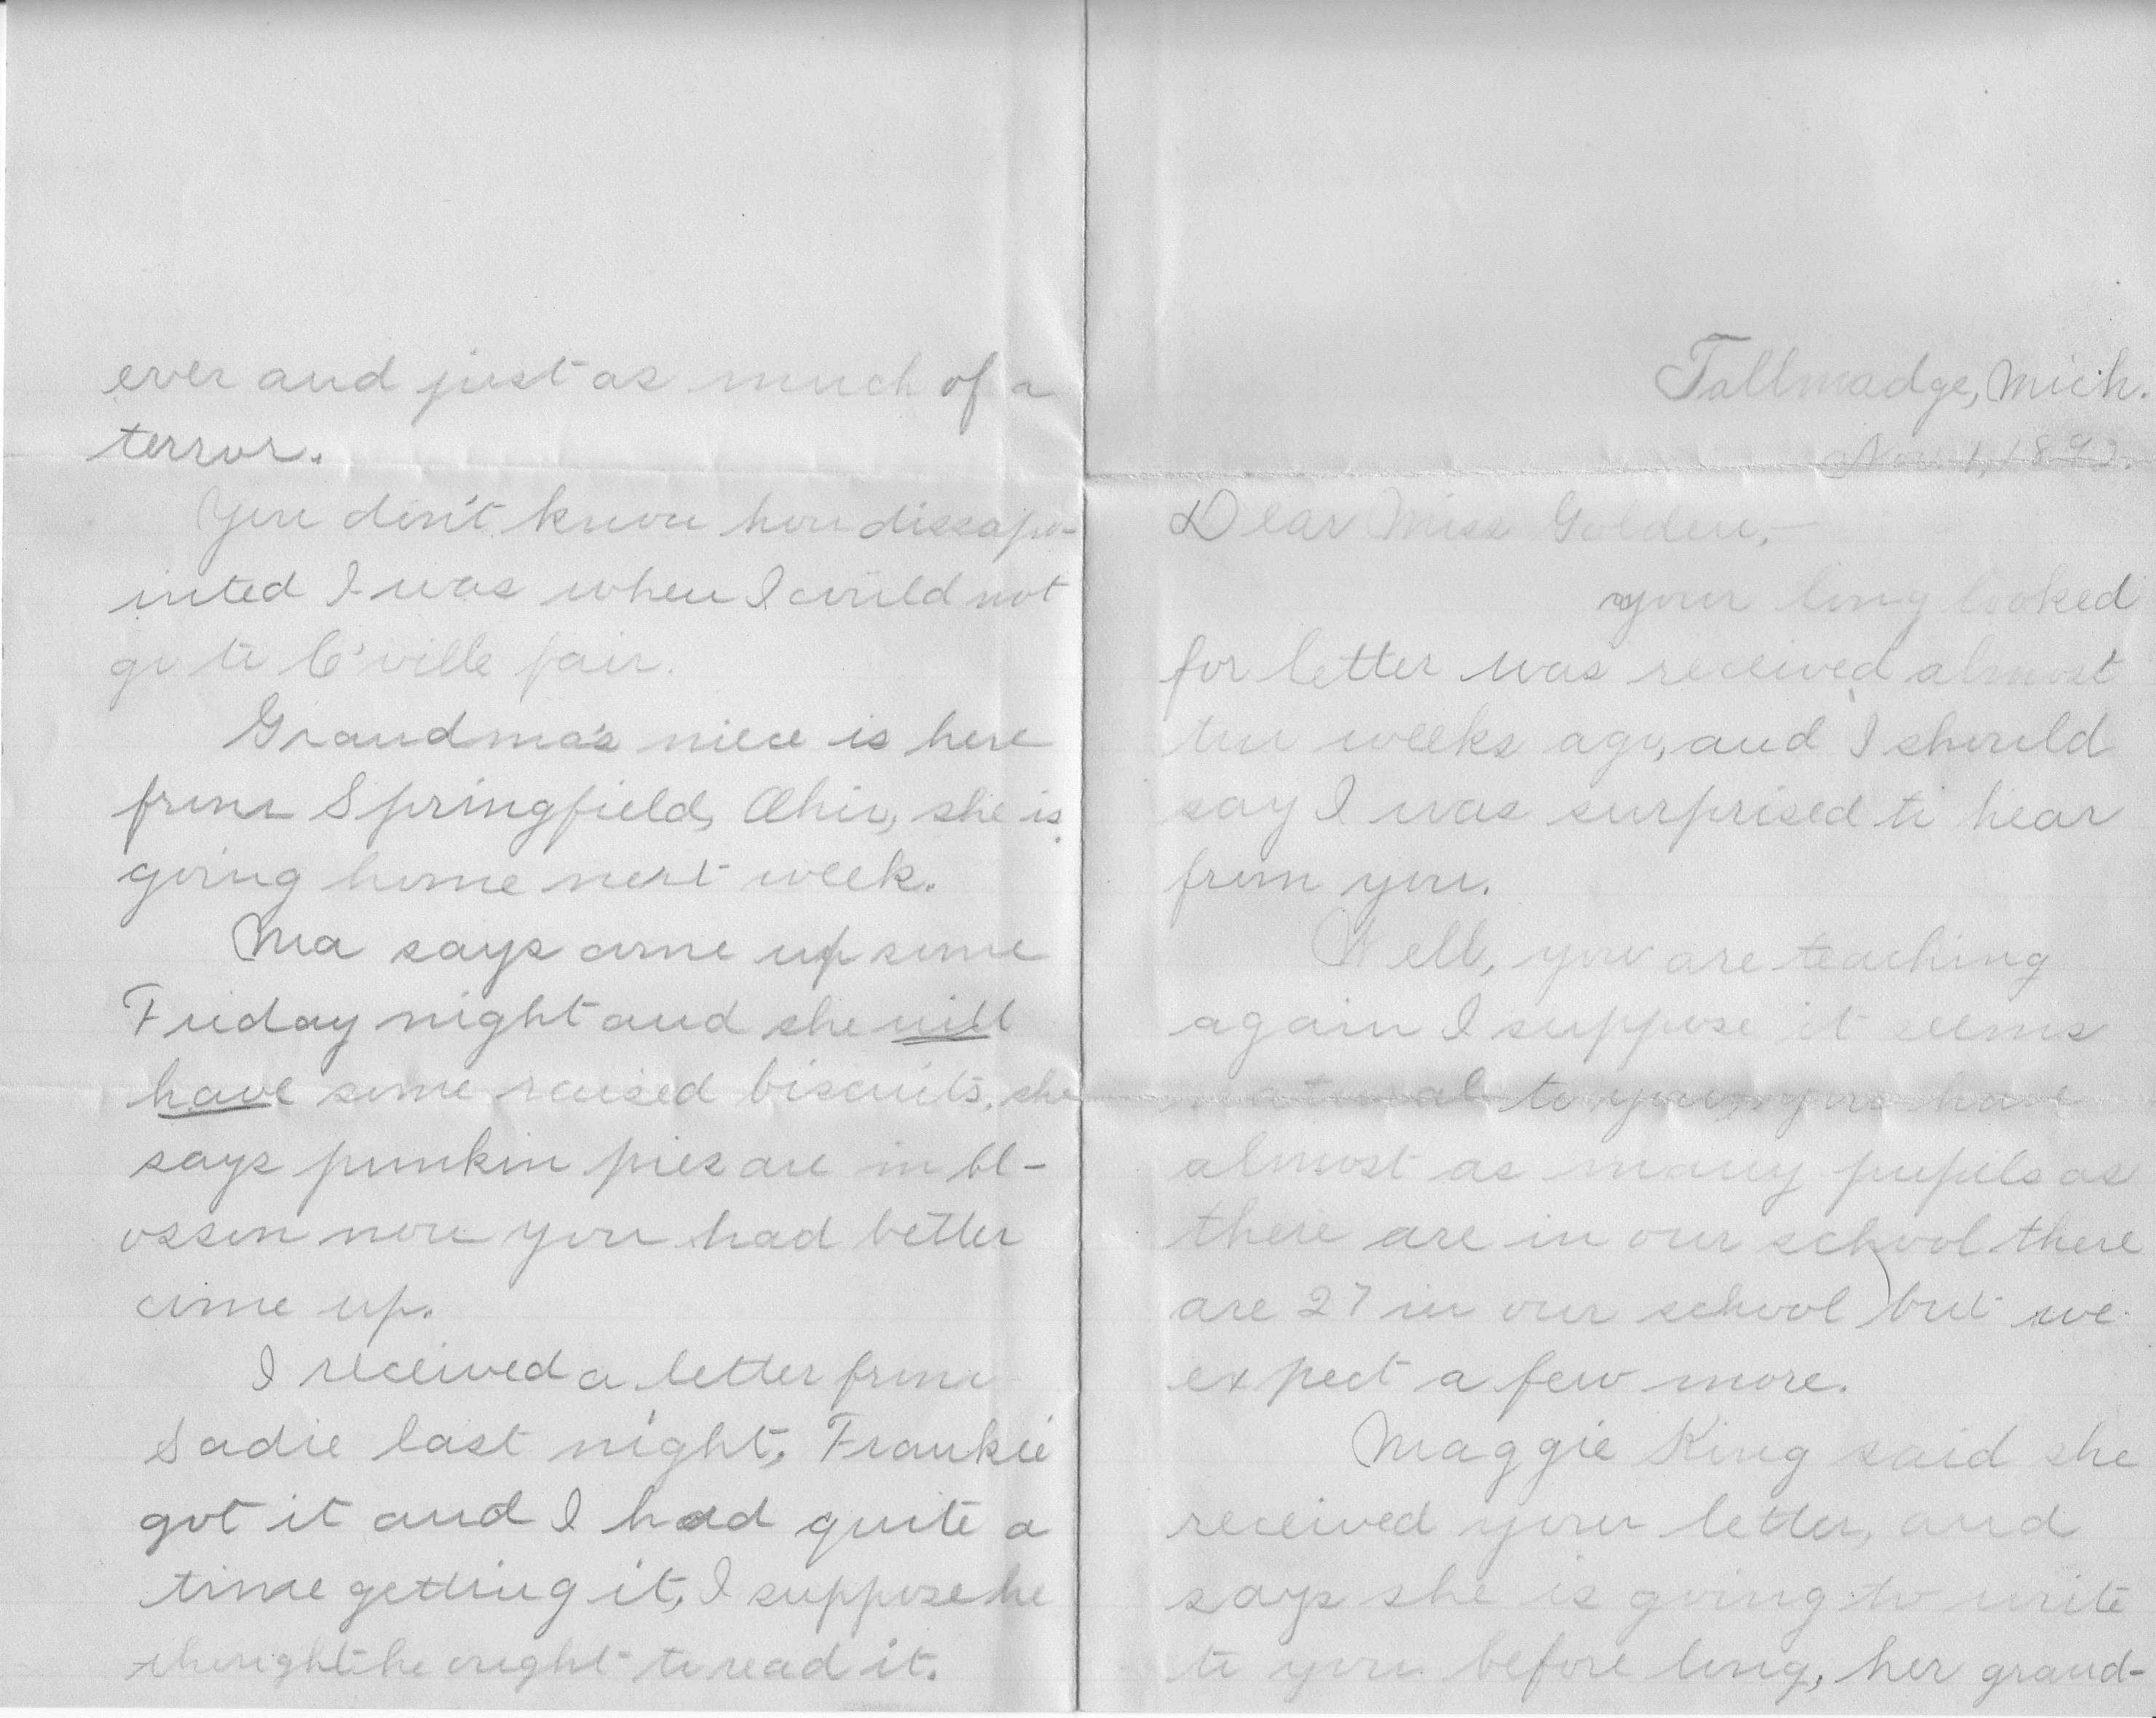 Tallmadge, Mich.
Nov. 1, 1892.
Dear Miss Golden,—
your long looked
for letter was received almost
two weeks ago, and I should
say I was surprised to hear
from you.
Well, you are teaching
again I suppose it seems
natural to you, you have
almost as many pupils as
there are in our school there
are 27 in our school but we
expect a few more.
Maggie King said she
received your letter, and
says she is going to write
to you before long, her grand-
ever and just as much of a
terror.
You don't know how dissapo-
inted I was when I could not
go to C'ville fair.
Grandma's niece is here
from Springfield, Ohio, she is
going home next week.
Ma says come up some
Friday night and she will
have some raised biscuits, she
says punkin pies are in bl-
ossom now you had better
come up.
I received a letter from
Sadie last night, Frankie
got it and I had quite a
time getting it, I suppose he
thought he ought to read it.